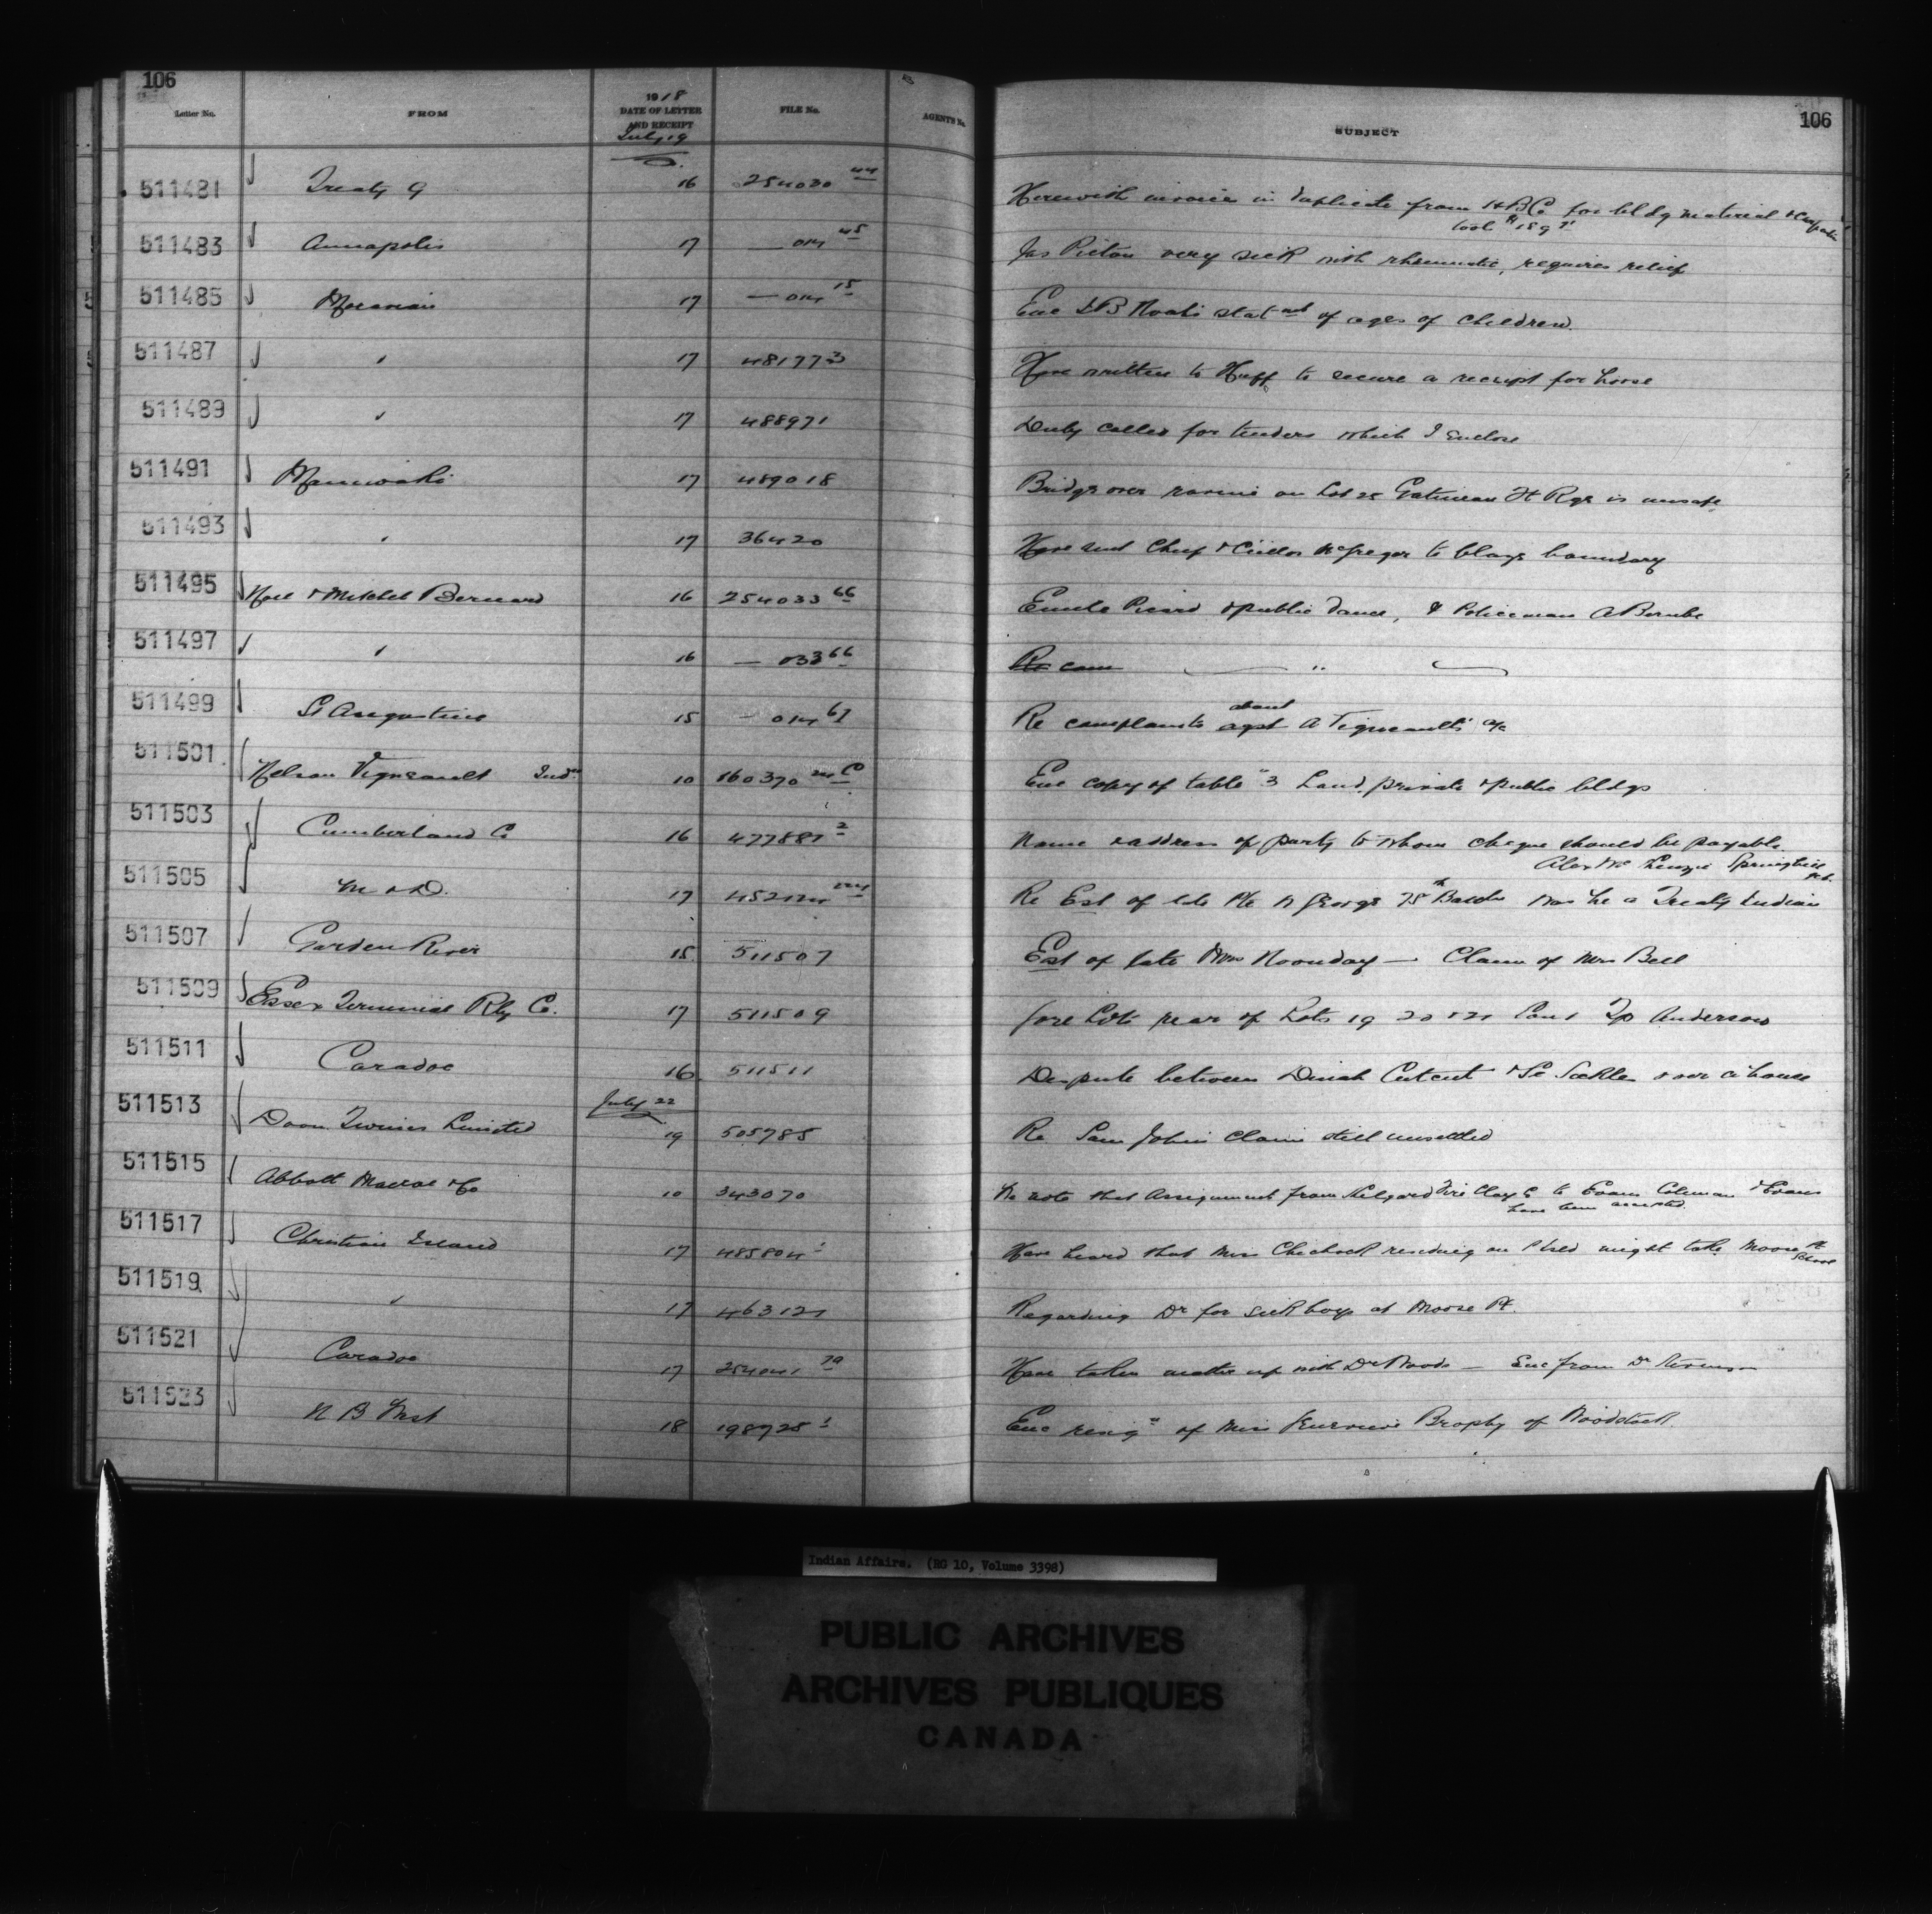 106
106
Letter No. FROM 1918 DATE OF LETTER AND RECEIPT FILE No. AGENTS No. SUBJECT
July 19
511481 Treaty 9 16 254030 44 Herewith invoice in duplicate from H B Co for bldg material &
511483 Annapolis 17 — 014 45 Jas Picton very sick with rheumatic, requires relief
511485 Moravian 17 — 014 15 Enc stat of ages of children
511487 " 17 481773 Have written to Huff to secure a receipt for horse
511489 " 17 488971 Duly called for tenders which I enclose
511491 Maniwaki 17 489018 Bridge over ravine on Lot 25 Gatineau Ft Rge is unsafe
511493 " 17 36420 Have sent Chief & McGregor to boundary
511495 & Mitchel Bernard 16 254033 66 Picard & public dance, & Policeman A Bernbe
511497 " 16 — 033 66 "
511499 St Augustine 15 — 014 61 Re complaints about A Vigneault's a/c
511501 Nelson Vigneault 10 160370 Enc copy of table 3 Land, private & public bldgs
511503 Cumberland Co 16 477887 2 Name & address of party to whom cheque should be payable
Alex McKenzie Springhill
511505 M & D. 17 Re Est of late Pte George 75th Battn was he a Treaty Indian
511507 Garden River 15 511507 Est of late Noonday — Claim of Mrs Bell
511509 Essex Terminal Rly Co. 17 511509 Gore Lots rear of Lots 19 20 & 21 Con 1 Tp Anderson
511511 Caradoc 16 511511 Dispute between Dinah & over a house
July 22
511513 Doon Twines Limited 19 505785 Re Sam John's claim still unsettled
511515 Abbott Macrae & Co 10 343070 We note that assignment from Kilgard Fire Clay Co to Evans Coleman & Evans
have been
511517 Christian Island 17 485804 1 Have heard that Miss Chechock residing on I might take Moose Pt
School
511519 " 17 463121 Regarding Dr for sick boys at Moose Pt.
511521 Caradoc 17 254041 70 Have taken matter up with Dr Woods — Enc from Dr
511523 N B West 18 198725 1 Enc resign of Miss Brophy of Woodstock
Indian Affairs. (RG 10, Volume 3398)
PUBLIC ARCHIVES
ARCHIVES PUBLIQUES
CANADA